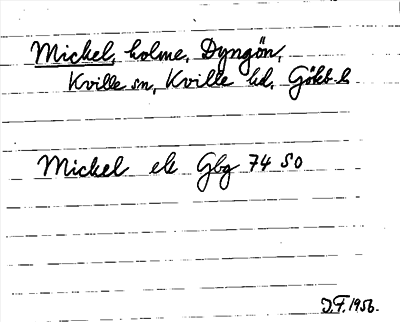 Mickel, holme, Dyngön,
Kville sn, Kville hd, Göteb l.
Mickel ek Gbg 74 SO
J.F. 1956.